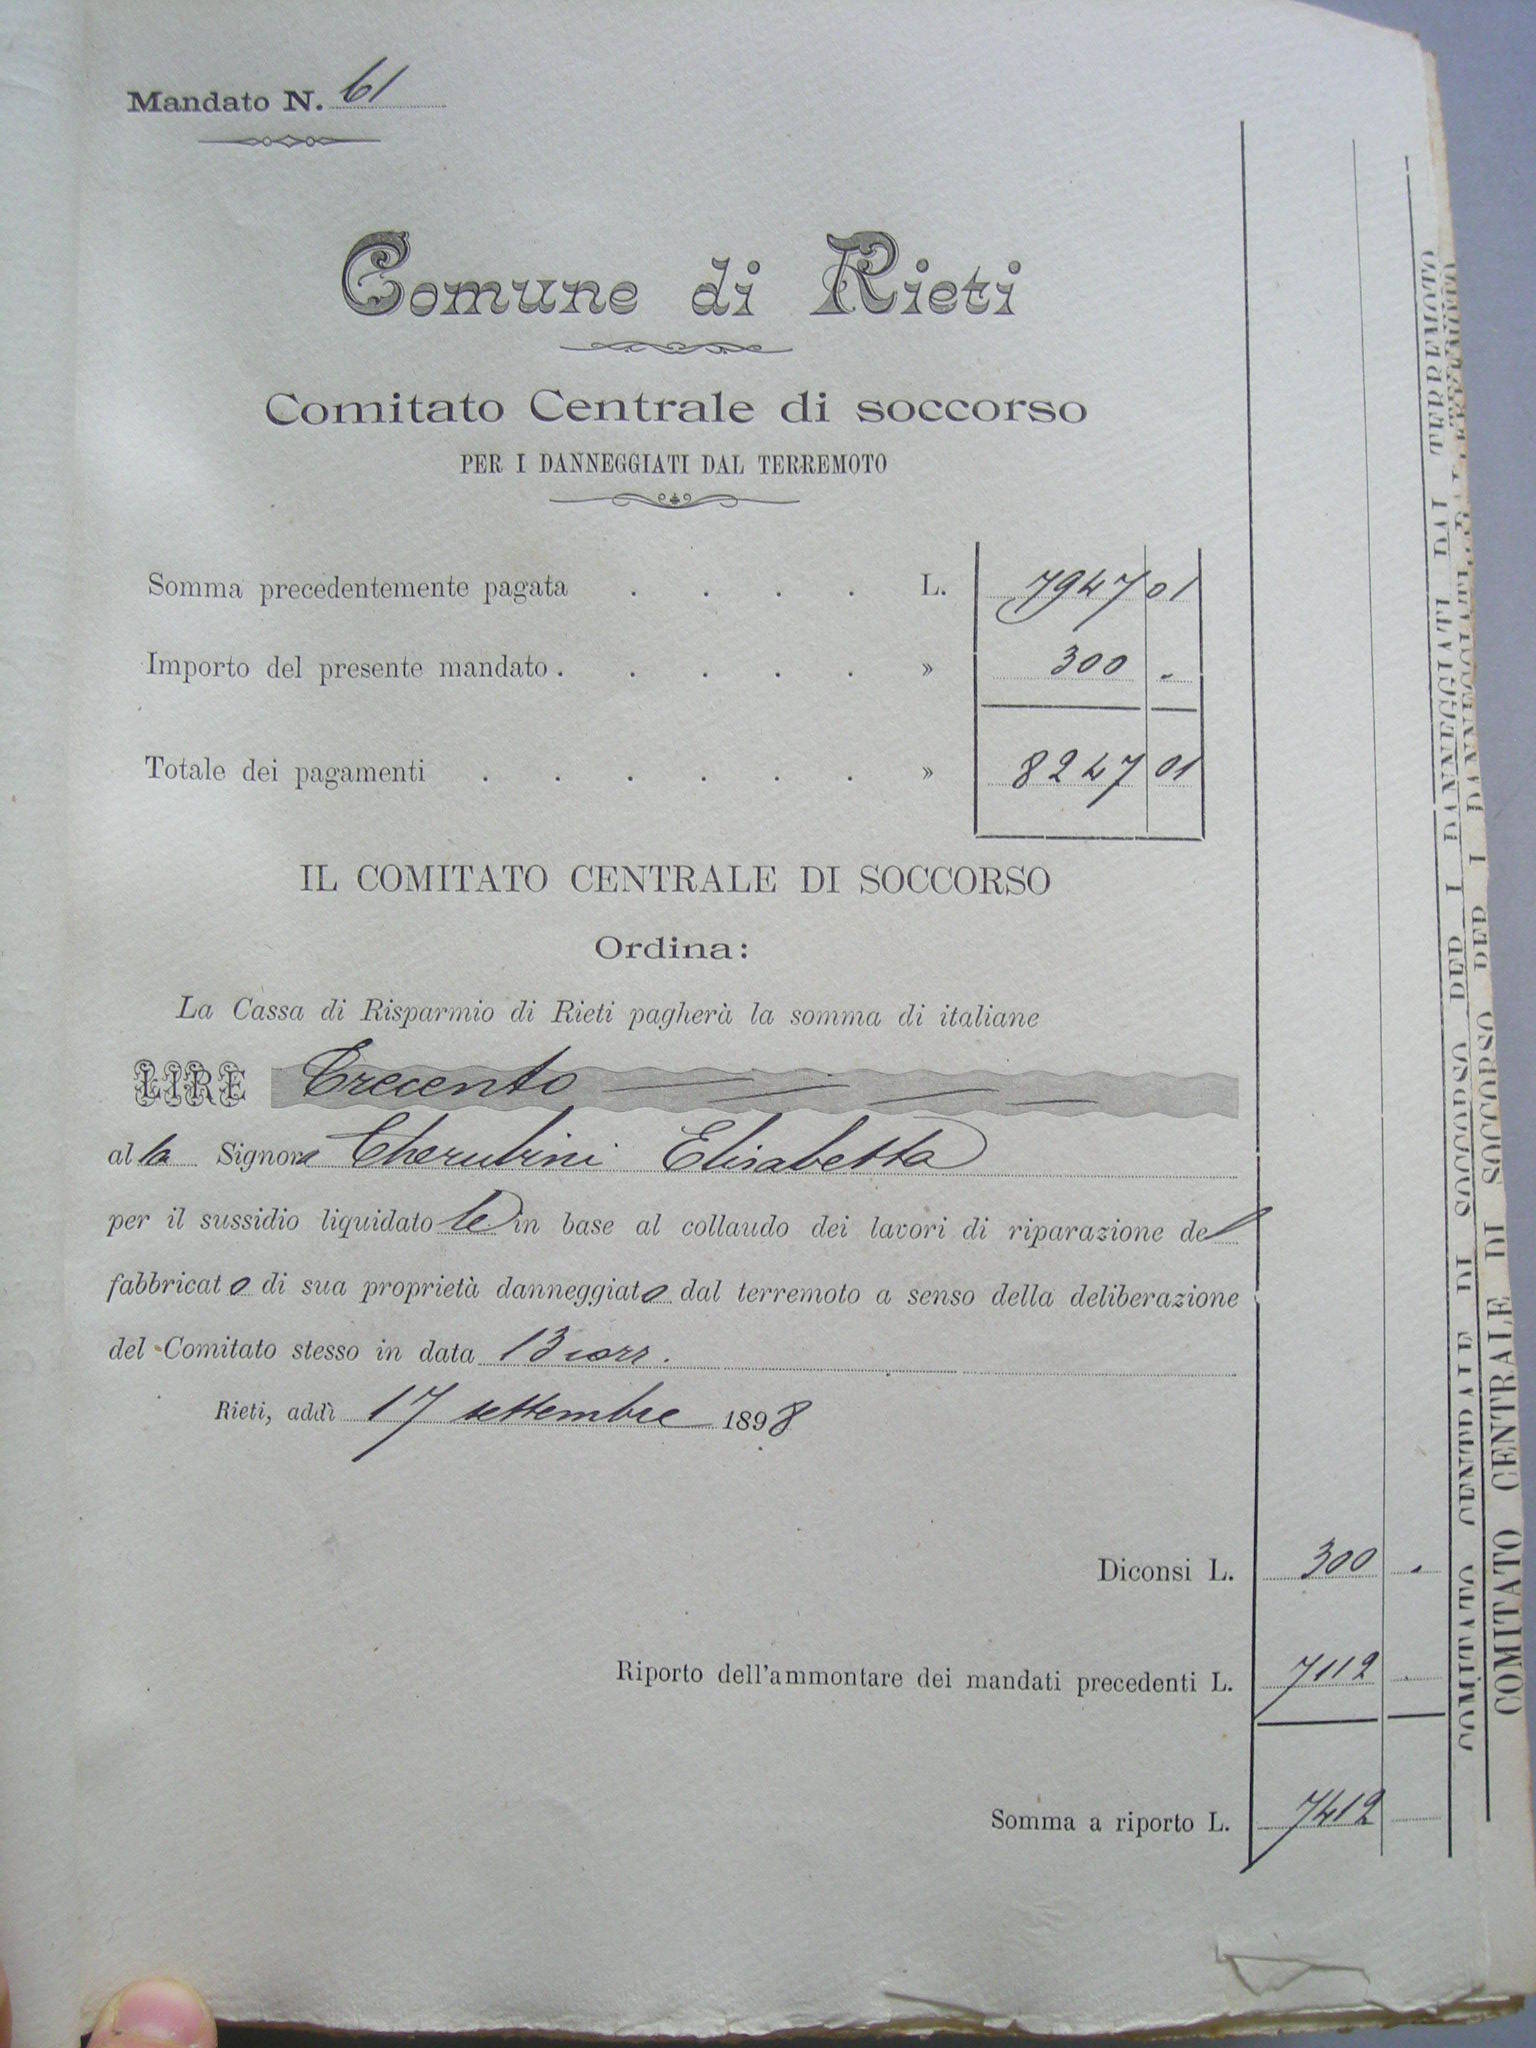 Mandato N. 61
Comune di Rieti
Comitato Centrale di soccorso
PER I DANNEGGIATI DAL TERREMOTO
Somma precedentemente pagata . . . . L. 7947 01
Importo del presente mandato . . . . . » 300 .
Totale dei pagamenti . . . . . . » 8247 01
IL COMITATO CENTRALE DI SOCCORSO
Ordina:
La Cassa di Risparmio di Rieti pagherà la somma di italiane
LIRE Trecento
alla Signora Cherubini Elisabetta
per il sussidio liquidatole in base al collaudo dei lavori di riparazione del
fabbricato di sua proprietà danneggiato dal terremoto a senso della deliberazione
del Comitato stesso in data 13 corr.
Rieti, addì 17 settembre 1898
Diconsi L. 300 .
Riporto dell'ammontare dei mandati precedenti L. 7112 .
Somma a riporto L. 7412
COMITATO CENTRALE DI SOCCORSO PER I DANNEGGIATI DAL TERREMOTO
COMITATO CENTRALE DI SOCCORSO PER I DANNEGGIATI DAL TERREMOTO